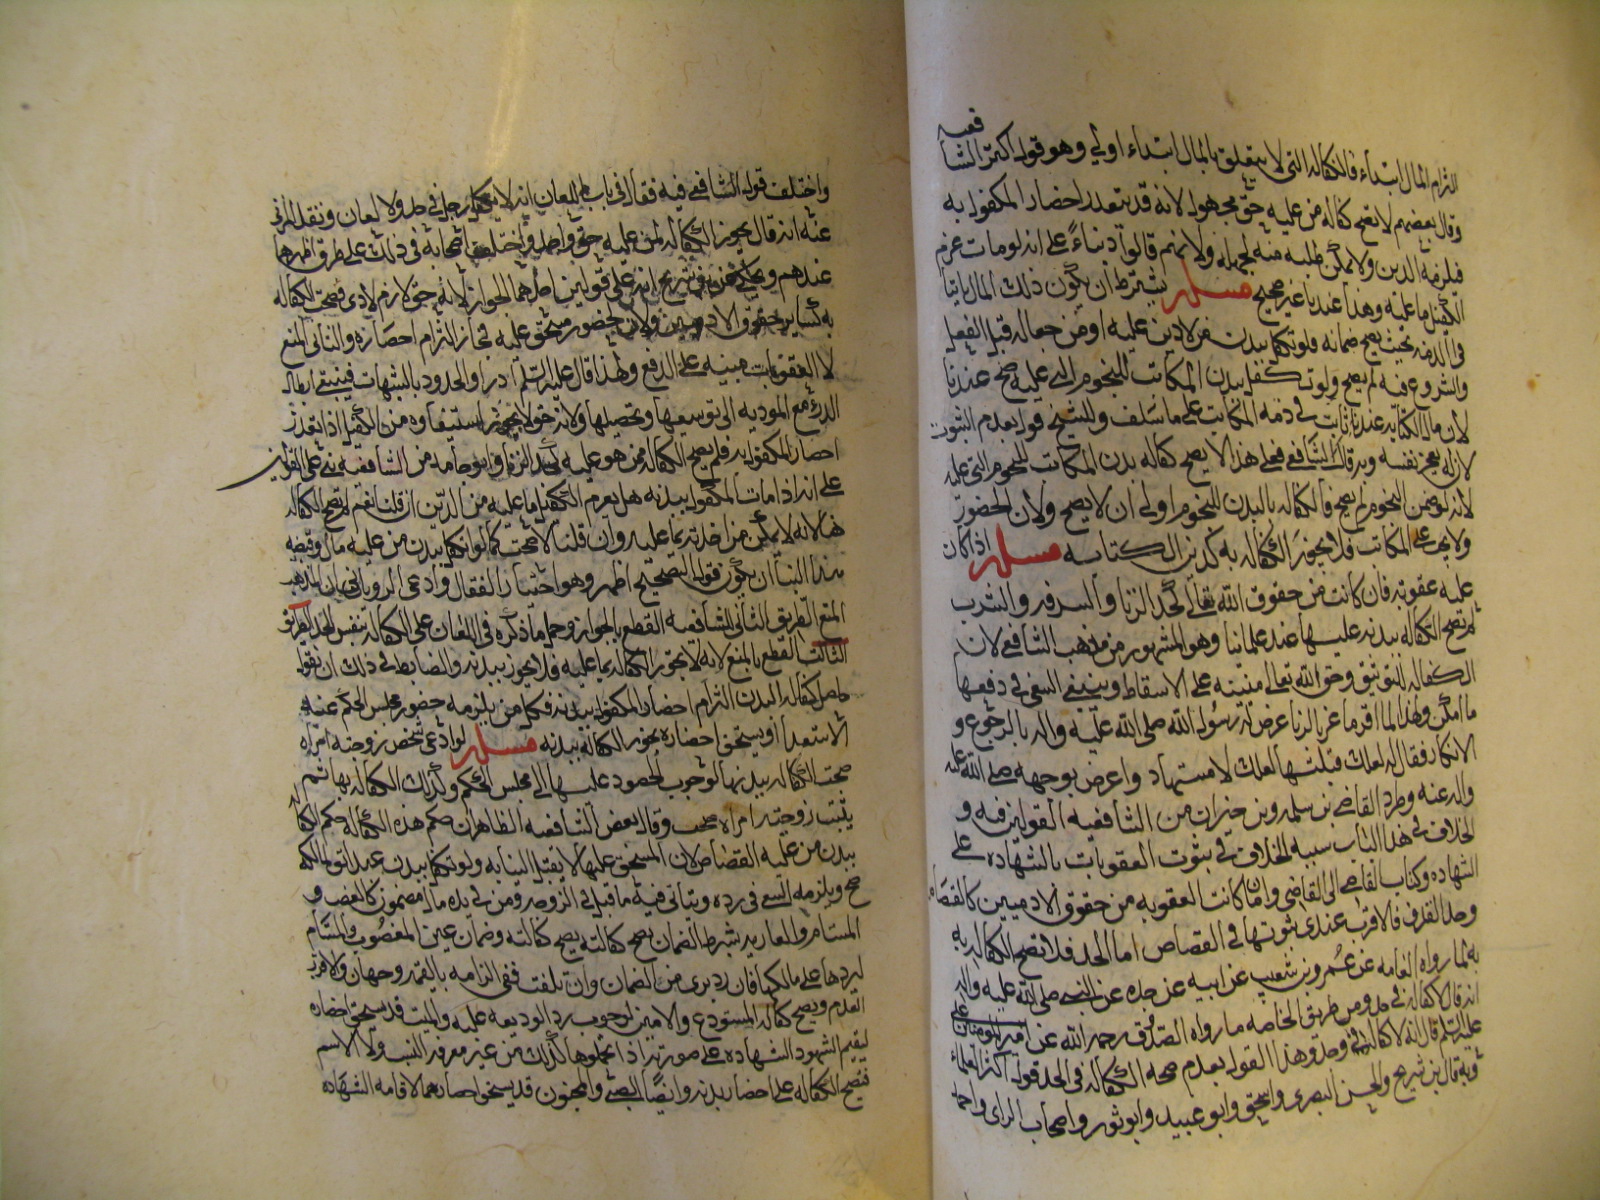 التزام المال ابتداء فالكفالة التي لا يتعلق بالمال ابتداء اولى وهو قول اكثر الشافعيه
وقال بعضهم لا تصح كفالة من عليه حق مجهول لانه قد يتعذر احضار المكفول به
فيلزمه الدين ولا يمكن طلبه منه لجهله ولانهم قالوا ذلك بناءً على انه لو مات غرم
الكفيل ما عليه وهذا عندنا غير صحيح مسئلة يشترط ان يكون ذلك المال ثابتا
في الذمة بحيث يصح ضمانه فلو تكفل ببدن من لا دين عليه او من جعالة قبل الفعل
والشروع فيه لم يصح ولو تكفل ببدن المكاتب للنجوم التي عليه صح عندنا
لان مال الكتابة عندنا ثابت في ذمة المكاتب على ما سلف وللشيخ قول بعدم الثبوت
لان له تعجيز نفسه وبه قال الشافعي فعلى هذا لا يصح كفالة بدن المكاتب للنجوم التي عليه
لانه لو ضمن النجوم لم يصح فالكفالة بالبدن للنجوم اولى ان لا يصح ولان الحضور
لا يجب على المكاتب فلا يجوز الكفالة به كدين الكتابة مسئلة اذا كان
عليه عقوبة فان كانت من حقوق الله تعالى كحد الزنا والسرقة والشرب
لم تصح الكفالة ببدنه عليها عند علمائنا وهو المشهور من مذهب الشافعي لان
الكفالة للتوثق وحق الله تعالى مبنية على الاسقاط وينبغي السعي في دفعها
ما امكن ولهذا لما اقر ماعز بالزنا عرض له رسول الله صلى الله عليه واله بالرجوع و
الانكار فقال له لعلك قبلتها لعلك لامستها واعرض بوجهه صلى الله عليه
واله عنه وطرد القاضي بن سلمه وبن خيران من الشافعيه القولين فيه و
الخلاف في هذا الباب شبيه الخلاف في ثبوت العقوبات بالشهادة على
الشهادة وكتاب القاضي الى القاضي وان كانت العقوبة من حقوق الادميين كالقصاص
وحد القذف فالاقرب عندي ثبوتها في القصاص اما الحد فلا تصح الكفالة به
لما رواه العامه عن عمرو بن شعيب عن ابيه عن جده عن النبي صلى الله عليه واله
انه قال لا كفالة في حد ومن طريق الخاصه ما رواه الصدوق رحمه الله عن امير المؤمنين علي
عليه السلم قال انه لا كفالة في حد وهذا القول بعدم صحة الكفالة في الحد قول اكثر العلماء
وبه قال بن شريح والحسن البصري واسحق وابو عبيد وابو ثور واصحاب الراى واحمد
واختلف قول الشافعي فيه فقال في باب اللعان انه لا يكفل رجل في حد ولا لعان ونقل المزني
عنه انه قال يجوز الكفالة بمن عليه حق واحد واختلف اصحابه في ذلك على طرق اظهرهما
عندهم ويحكى عن بن شريح انه على قولين اصلهما الجواز لانه حق لازم لادمي فصحت الكفالة
به كساير حقوق الادميين ولان الحضور مستحق عليه فجاز التزام احضاره والثاني المنع
لان العقوبات مبنية على الدفع ولهذا قال عليه السلم ادرأوا الحدود بالشبهات فينبغي ابطال
الذرايع المودية الى توسيعها وتحصيلها ولانه حق لا يجوز استيفاوه من الكفيل اذا تعذر
احضار المكفول به فلم يصح الكفالة بمن هو عليه كحد الزنا وابو حامد من الشافعيه بنى على القولين
على انه اذا مات المكفول ببدنه هل يغرم الكفيل ما عليه من الدين ان قلنا نعم لم تصح الكفالة
هنا لانه لا يمكن من اخذ به ما عليه وان قلنا لا صحت كما لو تكفل ببدن من عليه مال وقضية
هذا البناء ان يكون قول التصحيح اظهر وهو اختيار القفال وادعى الروياني ان المذهب
المنع الطريق الثاني للشافعيه القطع بالجواز وحمل ما ذكره في اللعان على الكفالة بنفس الحد الطريق
الثالث القطع بالمنع لانه لا تجوز الكفالة بما عليه فلا يجوز ببدنه والضابط في ذلك ان نقول
حاصل كفالة البدن التزام احضار المكفول ببدنه فكل من يلزمه حضور مجلس الحكم عند
الاستعدا او يستحق احضاره يجوز الكفالة ببدنه مسئلة لو ادعى شخص زوجية امراه
صحت الكفالة ببدنها لوجوب الحضور عليها الى مجلس الحكم وكذلك الكفالة بها لمن
يثبت زوجيته امراه صحت وقال بعض الشافعيه الظاهر ان حكم هذه الكفالة حكم الكفالة
ببدن من عليه القصاص لان المستحق عليها لا يقبل النيابه ولو تكفل ببدن عبد ابق لمالكه
صح ويلزمه السعي في رده ويتاتى فيه ما قيل في الزوجه ومن في يده مال مضمون كالغصب و
المستام والعاريه بشرط الضمان يصح كفالته يصح كفالته وضمان عين المغصوب والمستام
ليردها على مالكها فان رد برى من الضمان وان تلفت ففي الزامه بالقيمه وجهان والاقرب
العدم ويصح كفالة المستودع والامين لوجوب رد الوديعة عليه والميت قد يستحق احضاره
ليقيم الشهود الشهادة على صورته اذا تحملوها كذلك من غير معرفة النسب ولا الاسم
فتصح الكفالة على احضار بدنه وايضا الصبي والمجنون قد يستحق احضارهما لاقامة الشهادة